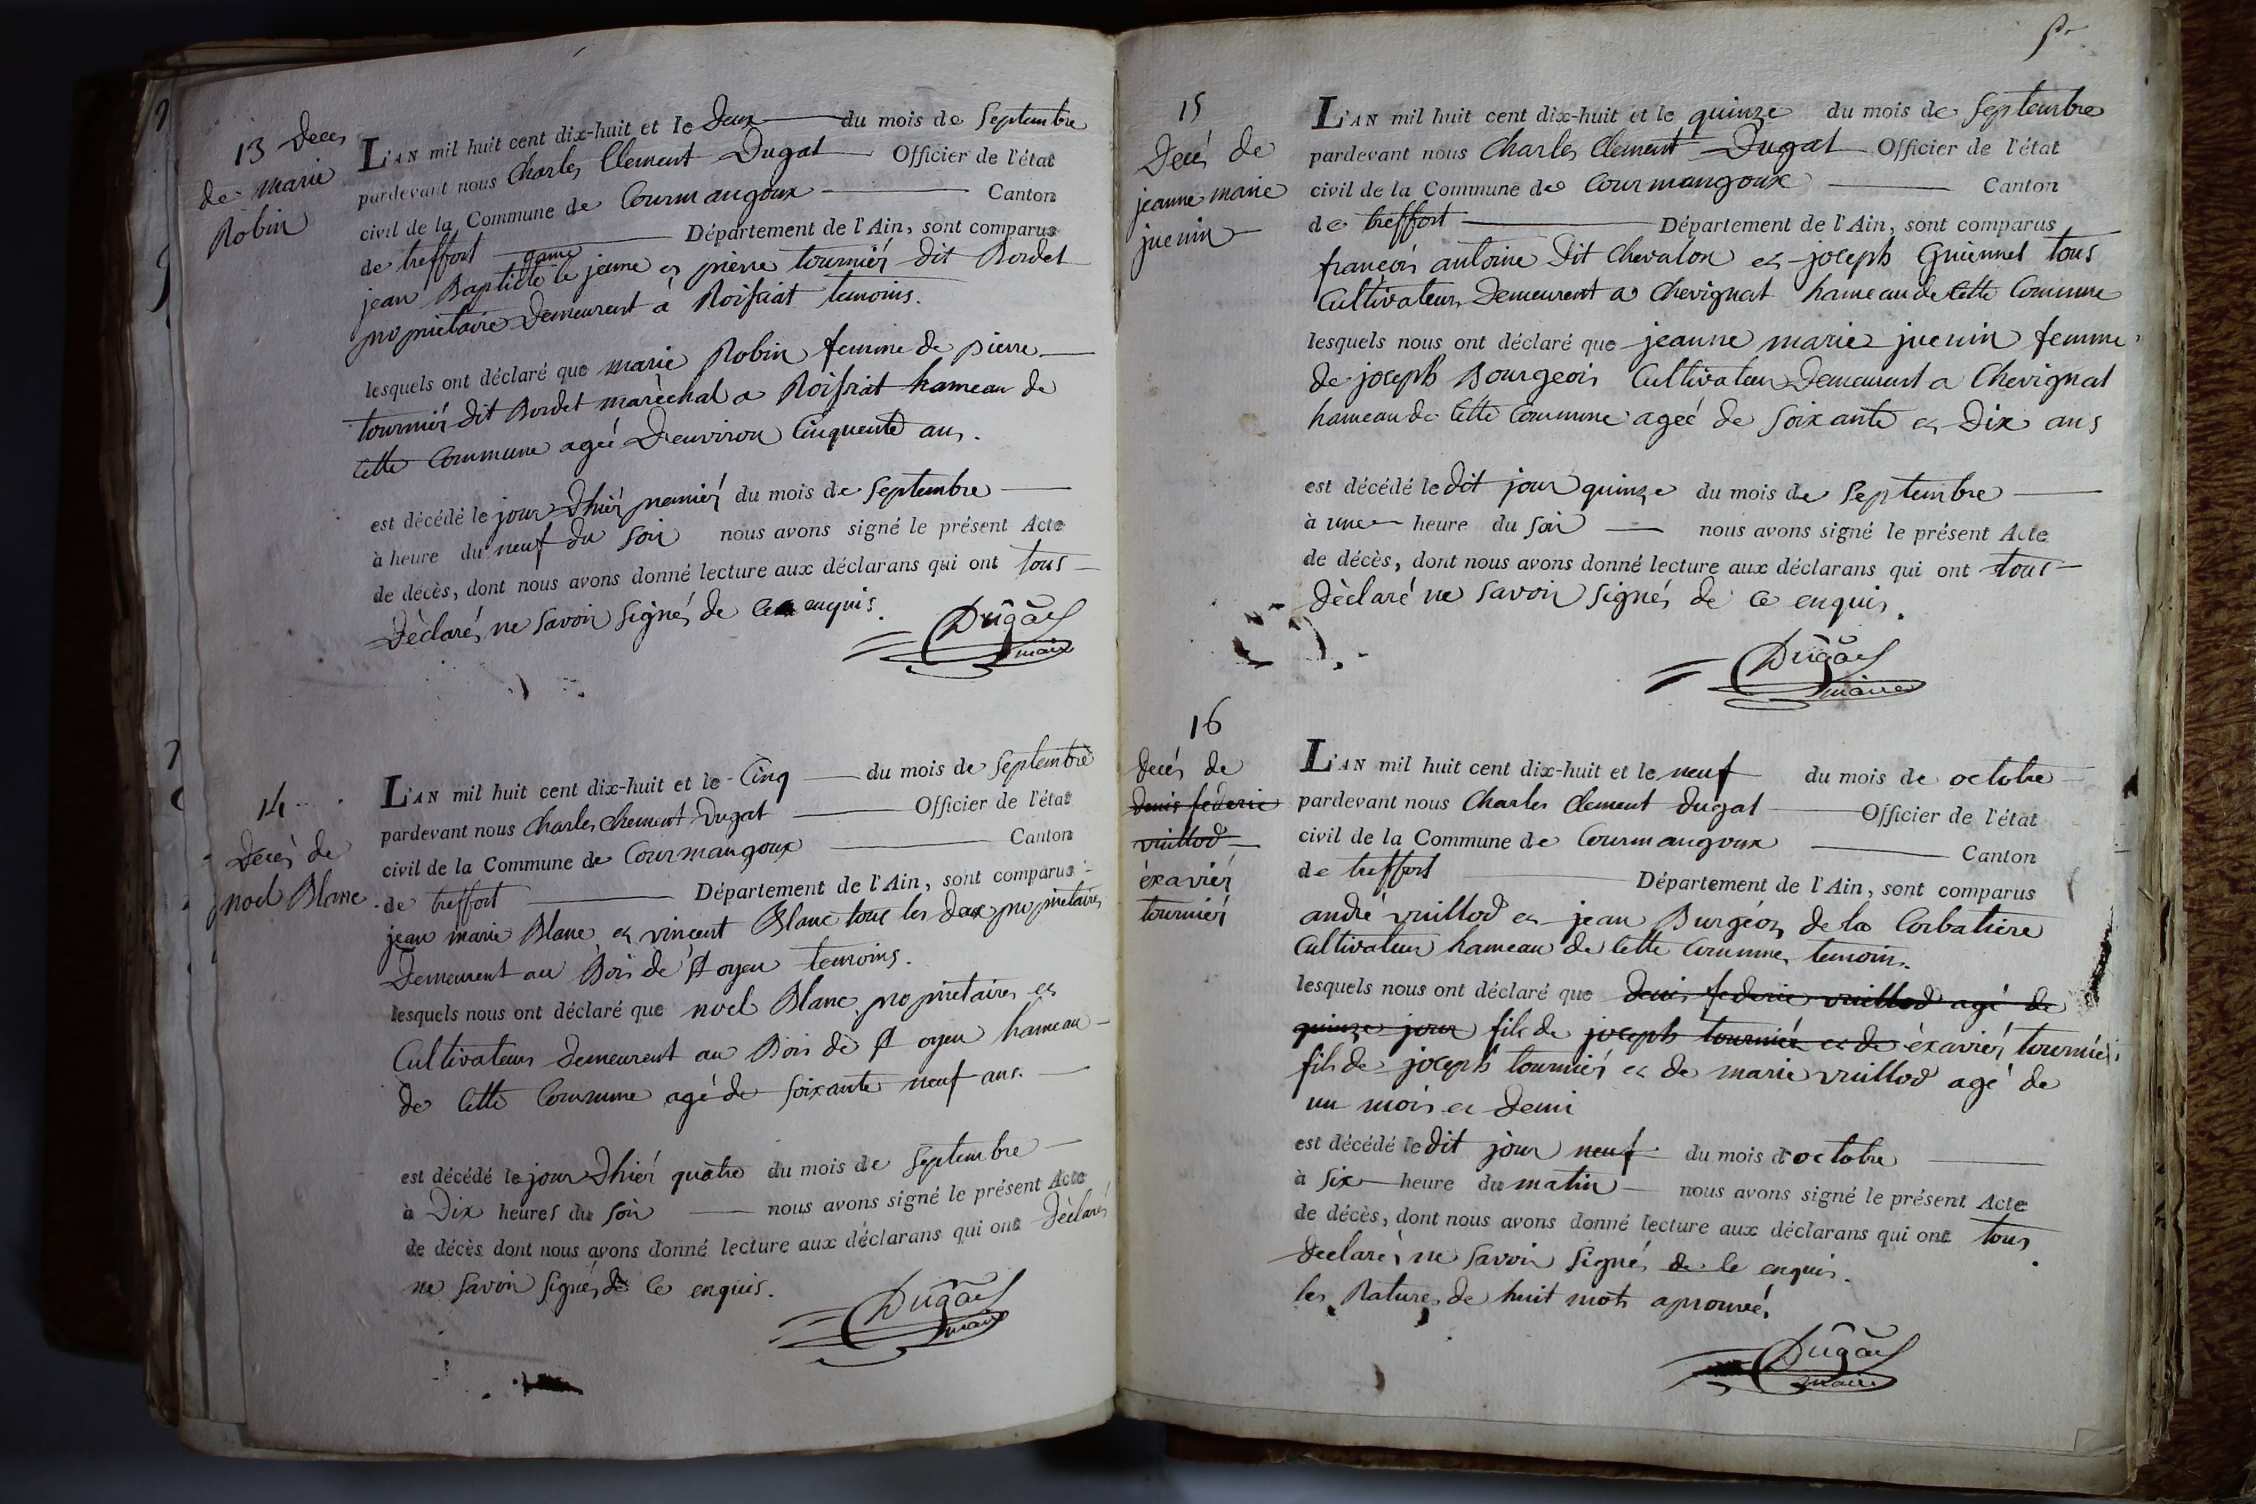 13 Deces
de marie
Robin
L'AN mil huit cent dix-huit et le Deux du mois de Septembre
pardevant nous Charles Clement Dugat Officier de l'état
civil de la Commune de Courmangoux Canton
de treffort Département de l'Ain, sont comparus
game
jean Baptiste le jeune et pierre tournier dit Bordet
proprietaire Demeurent à Roissiat temoins.
lesquels ont déclaré que marie Robin femme de pierre
tournier dit Bordet maréchal a Roissiat hameau de
cette Commune ageé D'environ Cinquente ans.
est décédé le jour D'hier premier du mois de Septembre
à heure du neuf du soir nous avons signé le présent Acte
de décès, dont nous avons donné lecture aux déclarans qui ont tous
Déclarés ne Savoir Signés de ce enquis.
Dugat
maire
14
Decès de
noel Blanc
L'AN mil huit cent dix-huit et le Cinq du mois de Septembre
pardevant nous Charles Clement Dugat Officier de l'état
civil de la Commune de Courmangoux Canton
de treffort Département de l'Ain, sont comparus
jean marie Blanc et vincent Blanc tous les deux propriétaires
Demeurent au Bois de St oyen temoins.
lesquels nous ont déclaré que noel Blanc propriétaire et
Cultivateur Demeurent au Bois de St oyen hameau
de Cette Commune agé de soixante neuf ans.
est décédé le jour D'hier quatre du mois de Septembre
à Dix heures du soir nous avons signé le présent Acte
de décès dont nous avons donné lecture aux déclarans qui ont Déclarés
ne savoir signés de Ce enquis.
Dugat
maire
15
Decés de
jeanne marie
juenin
L'AN mil huit cent dix-huit et le quinze du mois de Septembre
pardevant nous Charles Clement Dugat Officier de l'état
civil de la Commune de Courmangoux Canton
de treffort Département de l'Ain, sont comparus
françois antoine dit Chevalon et joseph Guiennet tous
Cultivateur Demeurent a Chevignat hameau de Cette Commune
lesquels nous ont déclaré que jeanne marie juenin femme
de joseph Bourgeois Cultivateur Demeurant a Chevignat
hameau de Cette Commune ageé de soixante et Dix ans
est décédé le dit jour quinze du mois de Septembre
à une heure du soir nous avons signé le présent Acte
de décès, dont nous avons donné lecture aux déclarans qui ont tous
Déclaré ne savoir signés de ce enquis.
Dugat
maire
16
Decés de
denis federic
vuillod
éxavier
tournier
L'AN mil huit cent dix-huit et le neuf du mois de octobre
pardevant nous Charles Clement Dugat Officier de l'état
civil de la Commune de Courmangoux Canton
de treffort Département de l'Ain, sont comparus
andré vuillod et jean Burgéon de la Corbatiere
Cultivateur hameau de Cette Commune temoins.
lesquels nous ont déclaré que denis federic vuillod agé de
quinze jour fils de joseph tournier et de éxavier tournier
fils de joseph tournier et de marie vuillod agé de
un mois et Demi
est décédé le dit jour neuf du mois d'octobre
à Six heure du matin nous avons signé le présent Acte
de décès, dont nous avons donné lecture aux déclarans qui ont tous
Declarés ne savoir Signés de Ce enquis.
les Ratures de huit mots aprouvés
Dugat
maire